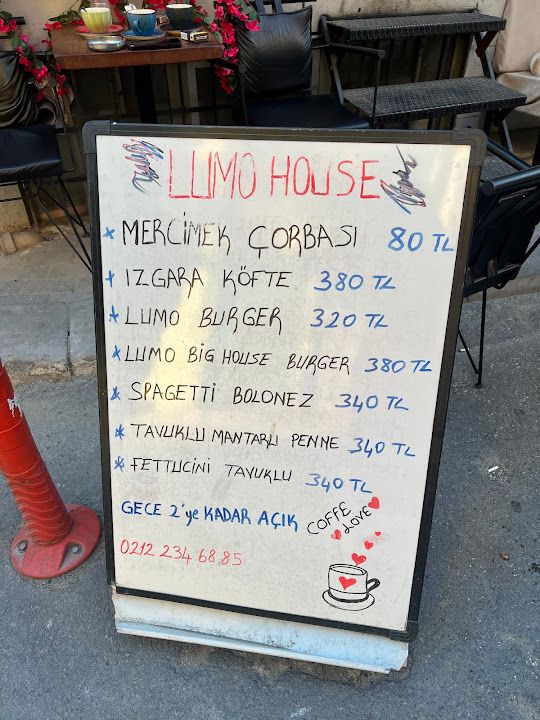 LUMO HOUSE
* MERCİMEK ÇORBASI 80 TL
* IZGARA KÖFTE 380 TL
* LUMO BURGER 320 TL
* LUMO BIG HOUSE BURGER 380 TL
* SPAGETTİ BOLONEZ 340 TL
* TAVUKLU MANTARLI PENNE 340 TL
* FETTUCİNİ TAVUKLU 340 TL
GECE 2'ye KADAR AÇIK
COFFE
LOVE
0212 234 68 85